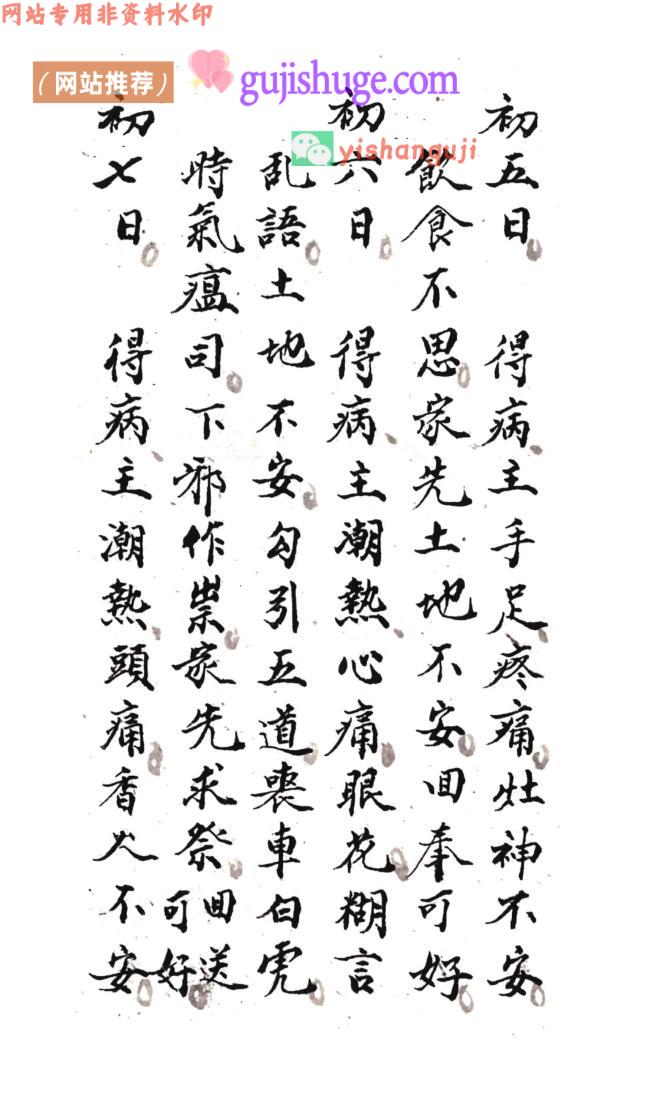 网站专用非资料水印
（网站推荐）
gujishuge.com
yishanguji
初五日 得病主手足疼痛灶神不安
飲食不思家先土地不安回奉可好
初六日 得病主潮熱心痛眼花糊言
乱語土地不安勾引五道喪車白虎
時氣瘟司下邪作祟家先求祭回送可好
初七日 得病主潮熱頭痛香火不安